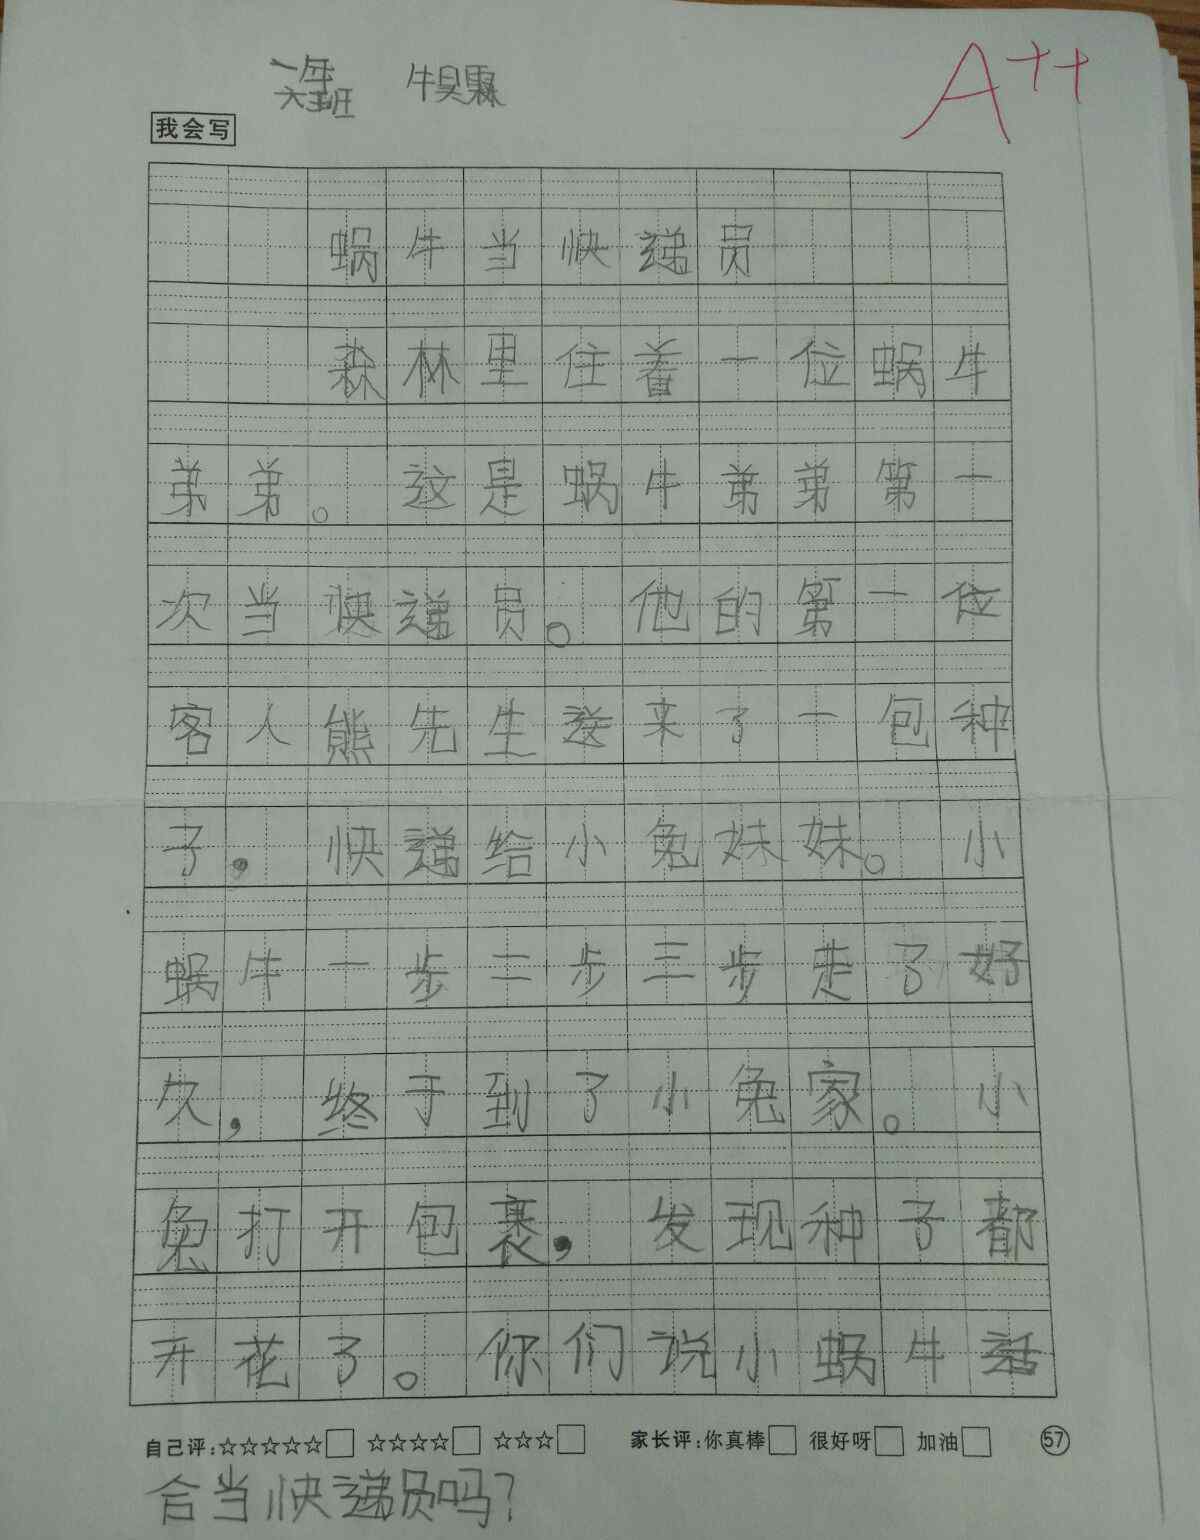 一年
六班 牛昊霖
A++
我会写
蜗牛当快递员
森林里住着一位蜗牛
弟弟。这是蜗牛弟弟第一
次当快递员。他的第一位
客人熊先生送来了一包种
子，快递给小兔妹妹。小
蜗牛一步二步三步走了好
久，终于到了小兔家。小
兔打开包裹，发现种子都
开花了。你们说小蜗牛适
合当快递员吗？
自己评：☆☆☆☆☆□ ☆☆☆☆□ ☆☆☆□ 家长评：你真棒□ 很好呀□ 加油□ 57